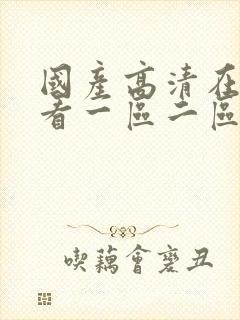 國產高清在
看一區二區
喫藕會變丑